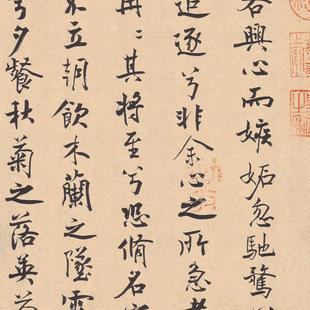 各興心而嫉妬忽馳騖
追逐兮非余心之所急老
冉〻其將至兮恐脩名
不立朝飲木蘭之墜露
兮夕餐秋菊之落英苟